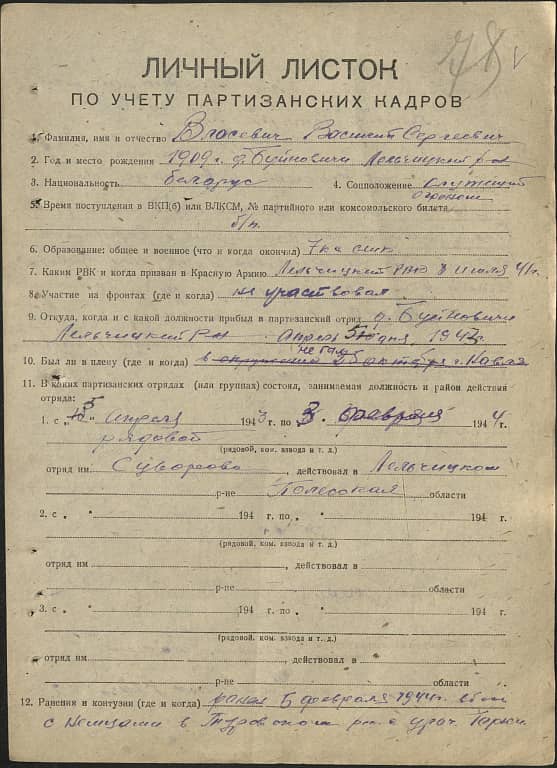 78 v
ЛИЧНЫЙ ЛИСТОК
ПО УЧЕТУ ПАРТИЗАНСКИХ КАДРОВ
1. Фамилия, имя и отчество Власевич Василий Сергеевич
2. Год и место рождения 1909 г. д. Буйновичи Лельчицкий р-н
3. Национальность белорус 4. Соцположение служащий
5. Время поступления в ВКП(б) или ВЛКСМ, № партийного или комсомольского билета
б/п.
6. Образование: общее и военное (что и когда окончил) 7
7. Каким РВК и когда призван в Красную Армию Лельчицкий РВК 8 июля 41 г.
8. Участие на фронтах (где и когда) не участвовал
9. Откуда, когда и с какой должности прибыл в партизанский отряд д. Буйновичи
Лельчицкий р-н апрель 5 дня, 1943
10. Был ли в плену (где и когда) в окружении 25 октября
11. В каких партизанских отрядах (или группах) состоял, занимаемая должность и район действия
отряда:
1. с „5“ апреля 1943 г. по „3. февраля 1944 г.
рядовой
(рядовой, ком. взвода и т. д.)
отряд им Суворова, действовал в Лельчицком
р-не Полесская области
2. с „ “ 194 г. по „ 194 г.
(рядовой, ком. взвода и т. д.)
отряд им , действовал в
р-не области
3. с „ “ 194 г. по „ 194 г.
(рядовой, ком. взвода и т. д.)
отряд им , действовал в
р-не области
12. Ранения и контузии (где и когда) ранен 5 февраля 1944 г. в бою
с немцами в Туровском р-не уроч.